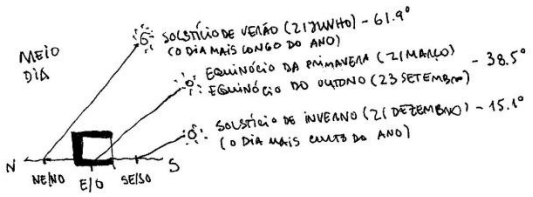 MEIO
DIA
SOLSTÍCIO DE VERÃO (21 JUNHO) - 61.9°
(O DIA MAIS LONGO DO ANO)
EQUINÓCIO DA PRIMAVERA (21 MARÇO)
EQUINÓCIO DO OUTONO (23 SETEMBRO)
- 38.5°
SOLSTÍCIO DE INVERNO (21 DEZEMBRO) - 15.1°
(O DIA MAIS CURTO DO ANO)
N
S
NE/NO
E/O
SE/SO